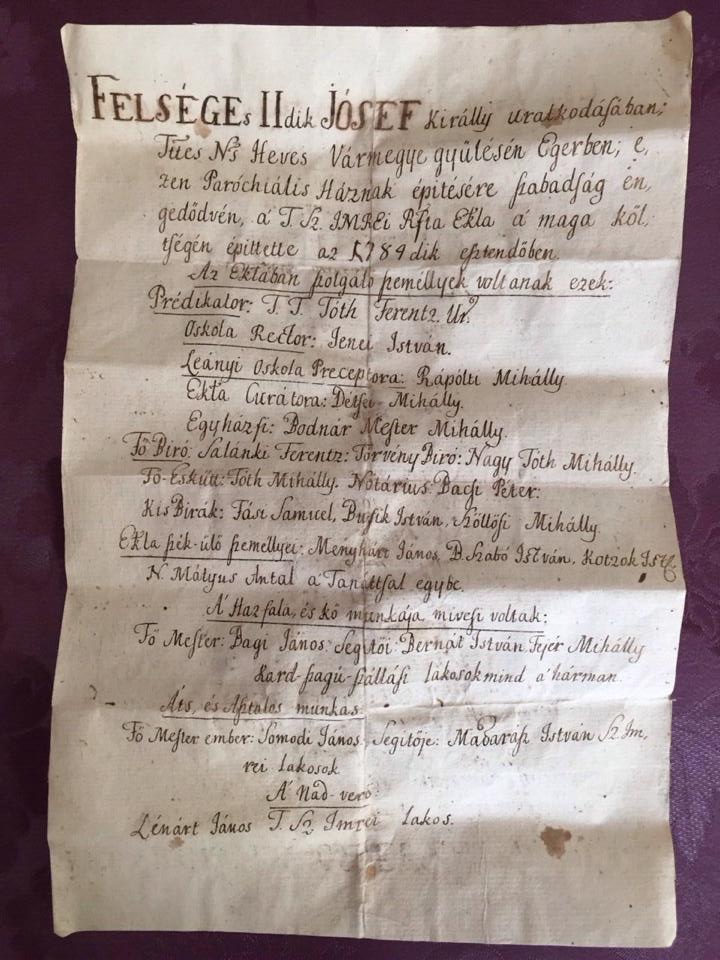 FELSÉGEs IIdik JÓSEF Királly uralkodásában;
Ttes Ns Heves Vármegye gyűlésén Egerben; e,
zen Paróchiális Háznak építésére szabadság én,
gedődvén, á T. Sz. IMREi Rfta Ekla á maga köl,
tségén épittette az 1784dik esztendőben.
Az Eklában szolgáló személlyek voltanak ezek:
Prédikátor: T. T. Tóth Ferentz. Ur.
Oskola Rector: Jenei István.
Leányi Oskola Preceptora: Rápólti Mihálly
Ekla Curátora: Détsei Mihálly.
Egyházfi: Bodnár Mester Mihálly.
Fő Biró: Salánki Ferentz: Törvény Biró: Nagy Tóth Mihálly.
Fő-Esküt: Tóth Mihálly. Nótárius: Bacsi Péter:
Kis Birák: Fási Samuel, Busik István, Szöllősi Mihálly.
Ekla szék-ülő szemellyei: Menyhárt János, B. Szabó István, Kotzok Ist
N. Mátyus Antal a Tanáttsal egybe.
Á Házfala, és kő munkája mivesi voltak:
Fő Mester: Bagi János: Segitöi: Bernát István, Fejér Mihálly
Kard-szagú-szállási lakosok mind a hárman.
Áts, és Asztalos munkás
Fő Mester ember: Somodi János. Segitöje: Madarász István Sz. Im,
rei lakosok
Á Nád-verő
Lénárt János T. Sz. Imrei lakos.